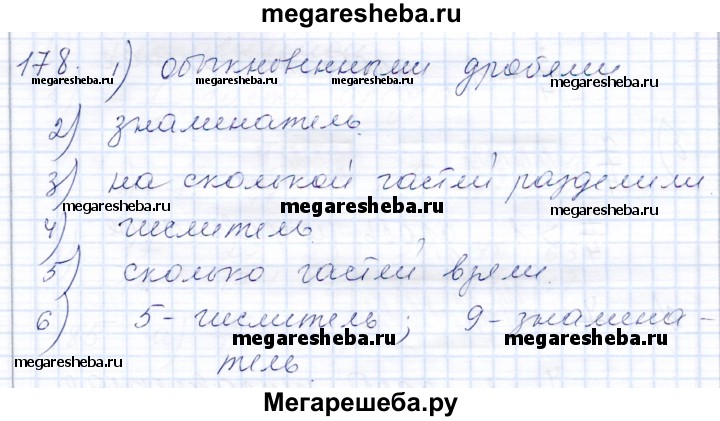 megaresheba.ru
178. 1) обыкновенными дробями
megaresheba.ru megaresheba.ru megaresheba.ru
2) знаменатель.
megaresheba.ru megaresheba.ru
3) на сколькой частей разделили.
megaresheba.ru megaresheba.ru megaresheba.ru
4) числитель.
megaresheba.ru megaresheba.ru
5) сколько частей взяли.
6) 5 - числитель; 9 - знамена -
megaresheba.ru megaresheba.ru megaresheba.ru
тель.
Мегарешеба.ру